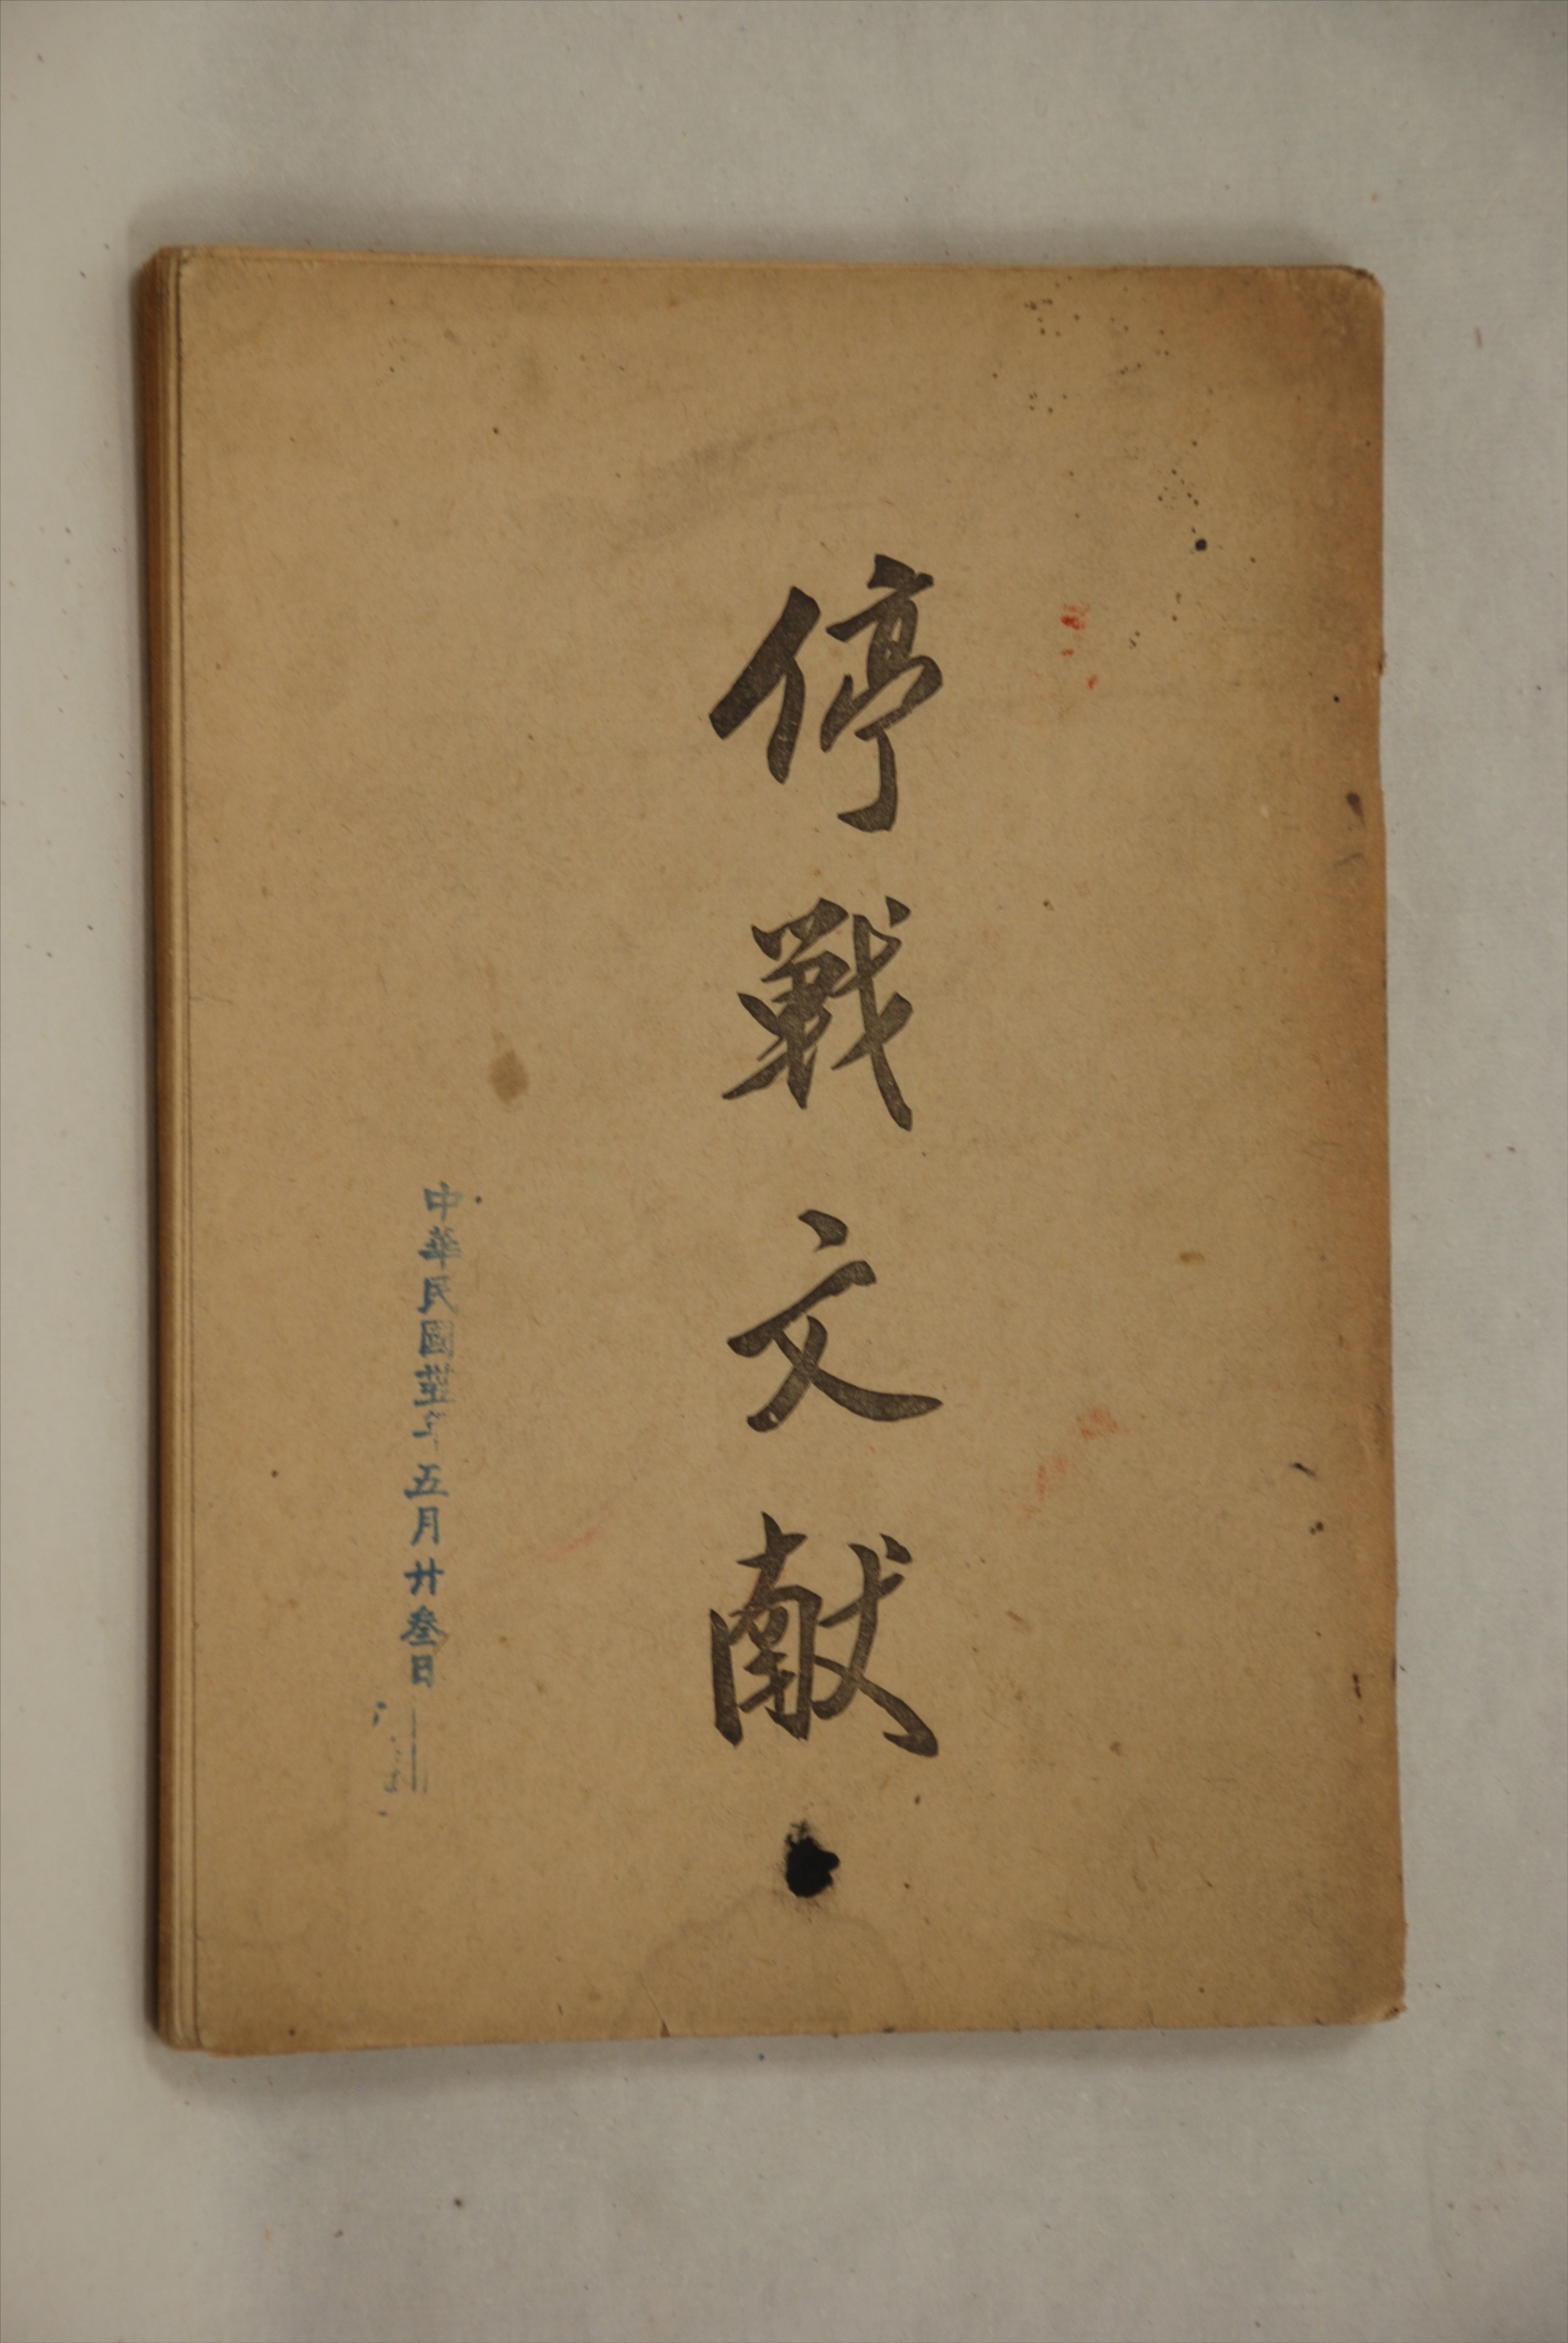 停戰文献
中華民國年五月廿叁日